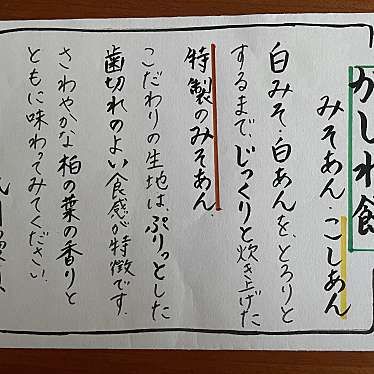 かしわ餅
みそあん・こしあん
白みそ・白あんを、とろりと
するまで、じっくりと炊き上げた
特製のみそあん。
こだわりの生地は、ぷりっとした
歯切れのよい食感が特徴です。
さわやかな柏の葉の香りと
ともに味わってみてください。